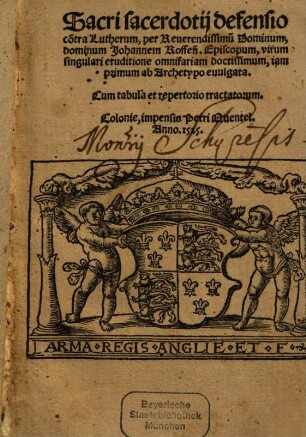 Sacri sacerdotij defensio
cōtra Lutherum, per Reuerendissimū Dominum,
dominum Johannem Roffeñ. Episcopum, virum
singulari eruditione omnifariam doctissimum, iam
primum ab Archetypo euulgata.
Cum tabula et repertorio tractatorum.
Colonie, impensis Petri Quentel.
Anno. 1525.
ARMA REGIS ANGLIE ET F
Bayerische
Staatsbibliothek
München